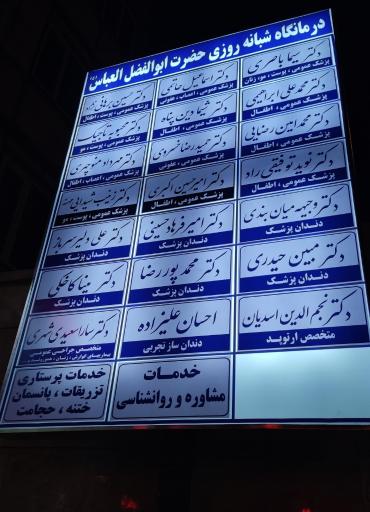 درمانگاه شبانه روزی حضرت ابوالفضل العباس (ع)
دکتر سیما باصری
پزشک عمومی ، پوست ، مو، زنان
دکتر اسماعیل حاتمی
پزشک عمومی ، اعصاب ، عفونی
دکتر حسین برهانی نژاد
پزشک عمومی ، پوست ، اطفال
دکتر محمدعلی ابراهیمی
پزشک عمومی ، اطفال
دکتر شیما دین پناه
پزشک عمومی ، اطفال
دکتر محبوبه تاجیک
پزشک عمومی ، پوست ، مو
دکتر محمدامین رضایی
پزشک عمومی ، اطفال
دکتر حمیدرضا خسروی
پزشک عمومی ، عفونی
دکتر مهرداد منوچهری
پزشک عمومی ، اعصاب ، اطفال
دکتر نوید توفیقی راد
پزشک عمومی ، اطفال
دکتر امیرحسین اکبری
پزشک عمومی ، اطفال
دکتر
پزشک عمومی ، پوست ، مو
دکتر وجیهه میان بندی
دندان پزشک
دکتر امیر فرهاد حسینی
دندان پزشک
دکتر علی دلیر سرباز
دندان پزشک
دکتر مبین حیدری
دندان پزشک
دکتر محمد پور رضا
دندان پزشک
دکتر مینا کاخکی
دندان پزشک
دکتر نجم الدین اسدیان
متخصص ارتوپد
احسان علیزاده
دندان ساز تجربی
دکتر سارا سعیدی
متخصص جراحی عمومی
خدمات
مشاوره و روانشناسی
خدمات پرستاری
تزریقات ، پانسمان
ختنه ، حجامت